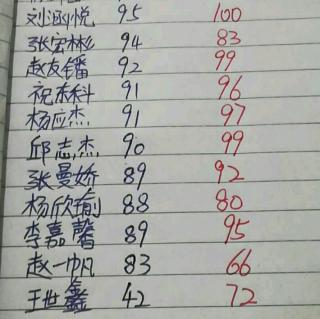 刘涵悦 95 100
张宏彬 94 83
赵友镭 92 99
祝杰科 91 96
杨应杰 91 97
邱志杰 90 99
张曼娇 89 92
杨欣瑜 88 80
李嘉馨 89 95
赵一帆 83 66
王世鑫 42 72